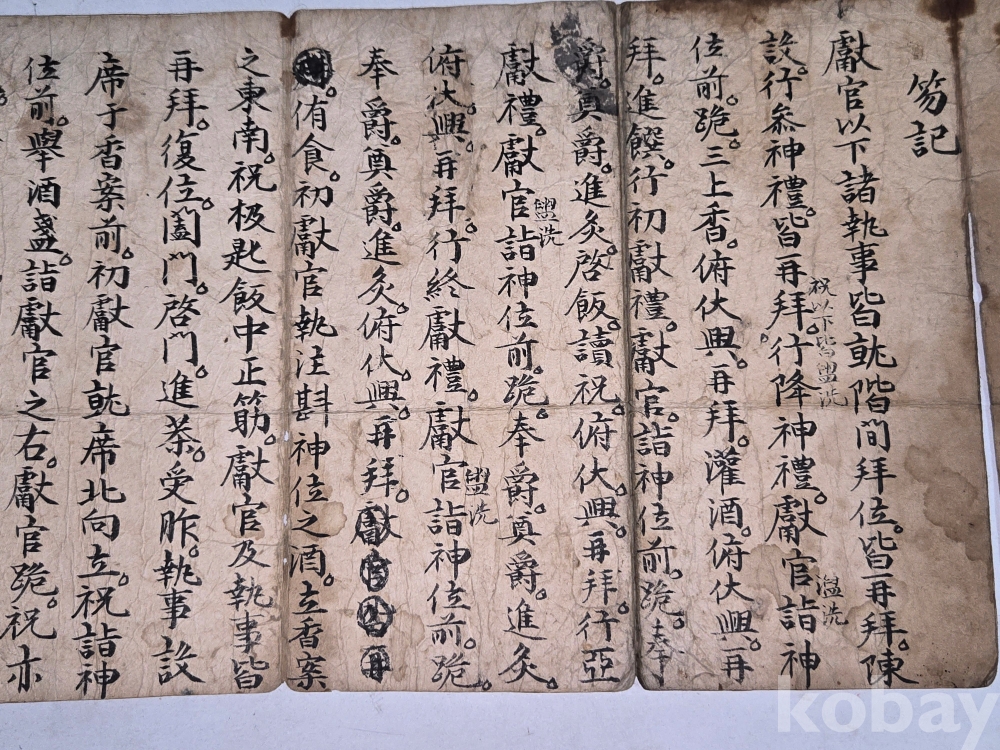 笏記
獻官以下諸執事皆就階間拜位。皆再拜。陳
設。行叅神禮。皆再拜。行降神禮。獻官詣神
祝以下皆盥洗
盥洗
位前。跪。三上香。俯伏興。再拜。灌酒。俯伏興。再
拜。進饌。行初獻禮。獻官。詣神位前。跪。奉
爵。奠爵。進炙。啓飯。讀祝。俯伏興。再拜。行亞
獻禮。獻官詣神位前。跪。奉爵。奠爵。進炙。
盥洗
俯伏。興。再拜。行終獻禮。獻官詣神位前。跪。
盥洗
奉爵。奠爵。進炙。俯伏。興。再拜。獻官皆再
侑食。初獻官執注斟神位之酒。立香案
之東南。祝极匙飯中正筯。獻官及執事皆
再拜。復位。闔門。啓門。進茶。受胙。執事設
席于香案前。初獻官就席北向立。祝詣神
位前。擧酒盞。詣獻官之右。獻官跪。祝亦
kobay